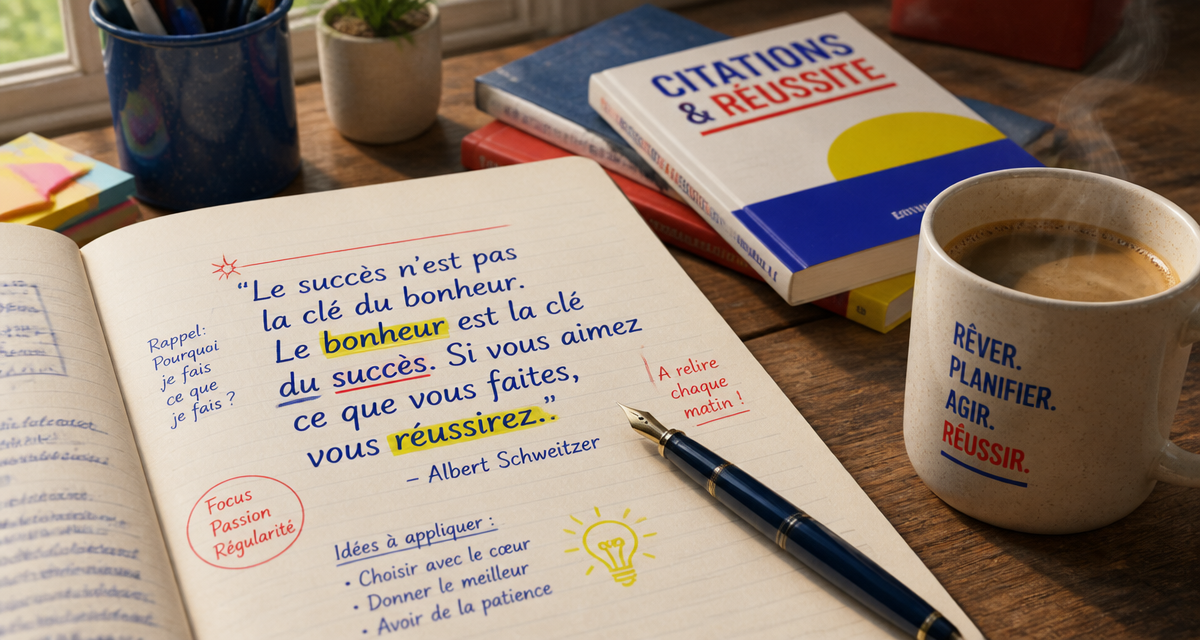 CITATIONS
& RÉUSSITE
“Le succès n'est pas
la clé du bonheur.
Le bonheur est la clé
du succès. Si vous aimez
ce que vous faites,
vous réussirez.”.
– Albert Schweitzer
Rappel:
Pourquoi
je fais
ce que
je fais ?
A relire
chaque
matin !
Focus
Passion
Régularité
Idées à appliquer :
• Choisir avec le cœur
• Donner le meilleur
• Avoir de la patience
RÊVER.
PLANIFIER.
AGIR.
RÉUSSIR.